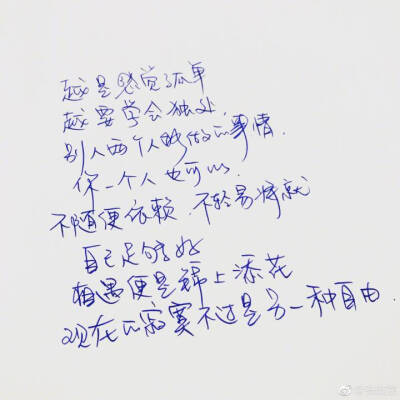 越是感觉孤单
越要学会独处.
别人两个人能做的事情.
你一个人也可以.
不随便依赖.不轻易将就
自己足够好
相遇便是锦上添花
现在的寂寞不过是另一种自由.